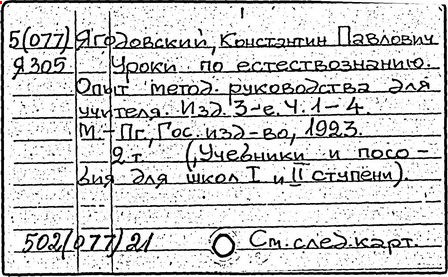 5(077) Ягодовский, Константин Павлович
Я305 Уроки по естествознанию.
Опыт метод. руководства для
учителя. Изд. 3-е. Ч. 1-4.
М.-Пг, Гос. изд-во, 1923.
2 т. (Учебники и посо-
бия для школ I и II ступени).
502(077)21 См. след. карт.